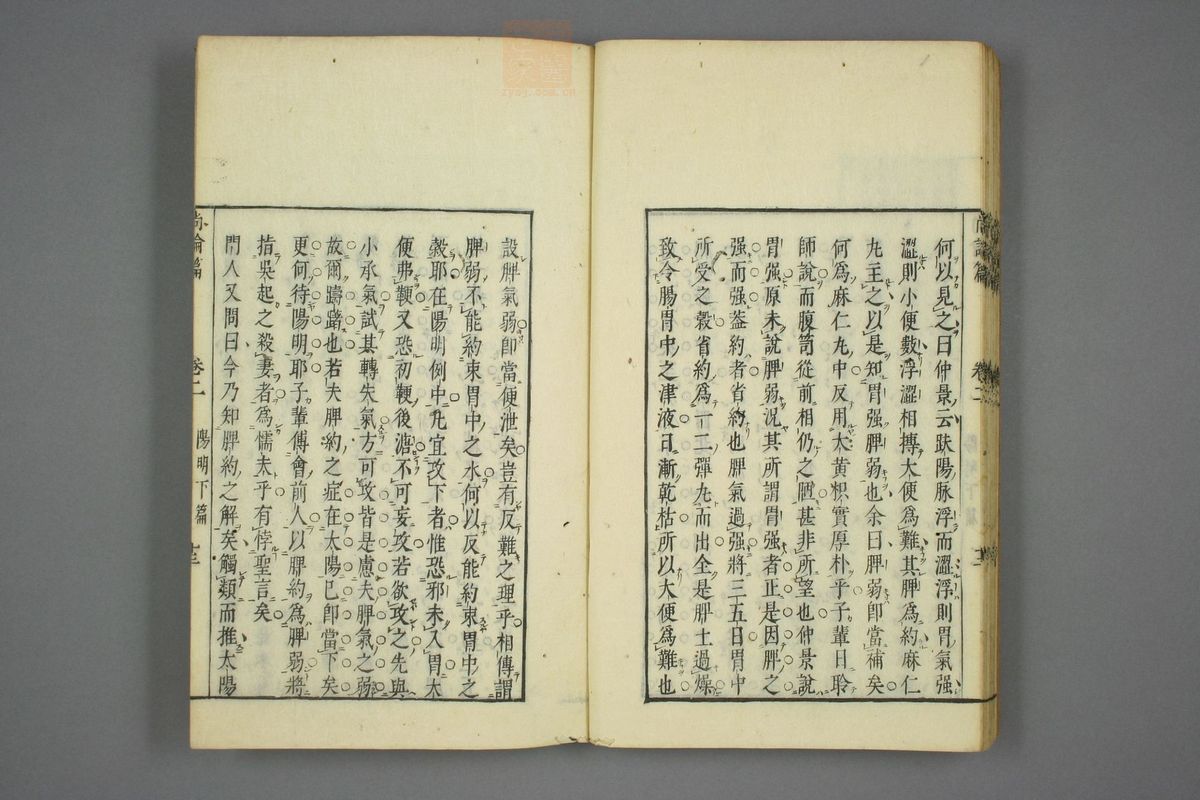 何以見之曰仲景云趺陽脉浮而澀浮則胃氣强
澀則小便數浮澀相摶大便為難其脾為約麻仁
丸主之以是知胃强脾弱也余曰脾弱卽當補矣
何為麻仁丸中反用大黄枳實厚朴乎子輩日聆
師說而腹笥從前相仍之陋甚非所望也仲景說
胃强原未說脾弱況其所謂胃强者正是因脾之
强而强葢約者省約也脾氣過强將三五日胃中
所受之穀省約為一二彈丸而出全是脾土過燥
致令腸胃中之津液日漸乾枯所以大便為難也
尚論篇 卷二
設脾氣弱卽當便泄矣豈有反難之理乎相傳謂
脾弱不能約束胃中之水何以反能約束胃中之
穀耶在陽明例中凡宜攻下者惟恐邪未入胃大
便弗鞕又恐初鞕後溏不可妄攻若欲攻之先與
小承氣試其轉失氣方可攻皆是慮夫脾氣之弱
故爾躊躇也若夫脾約之症在太陽已卽當下矣
更何待陽明耶子輩傅會前人以脾約為脾弱將
指吳起之殺妻者為懦夫乎有悖聖言矣
門人又問曰今乃知脾約之解矣觸類而推太陽
尚論篇 卷二 陽明下篇
zysj.com.cn